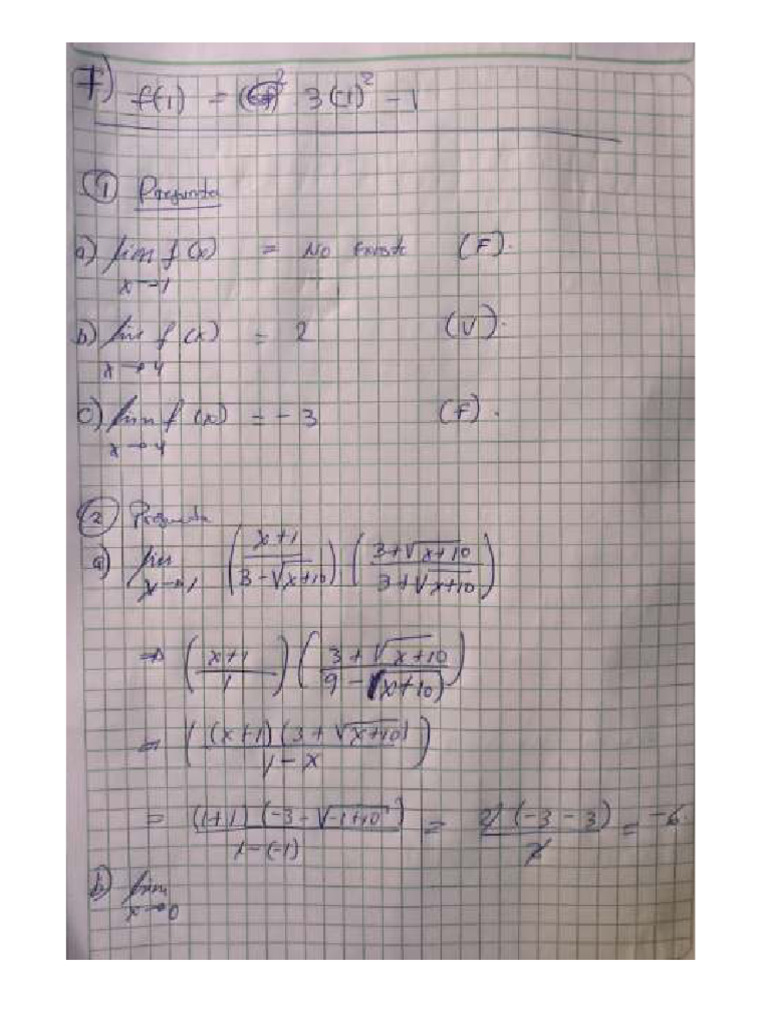 7) f(1) = 3(-1)² - 1
① Pregunta
a) lim f(x) = No Existe (F).
x→1
b) lim f(x) = 2 (V).
x→4
c) lim f(x) = -3 (F).
x→4
② Pregunta
a) lim ((x+1)/(3-√(x+10))) ((3+√(x+10))/(3+√(x+10)))
x→-1
⇒ ((x+1)/1) ((3+√(x+10))/(9-(x+10)))
= (((x+1)(3+√(x+10)))/(1-x))
= ((1+1)(-3-√(-1+10)))/(1-(-1)) = (2(-3-3))/2 = -6.
b) lim
x→0